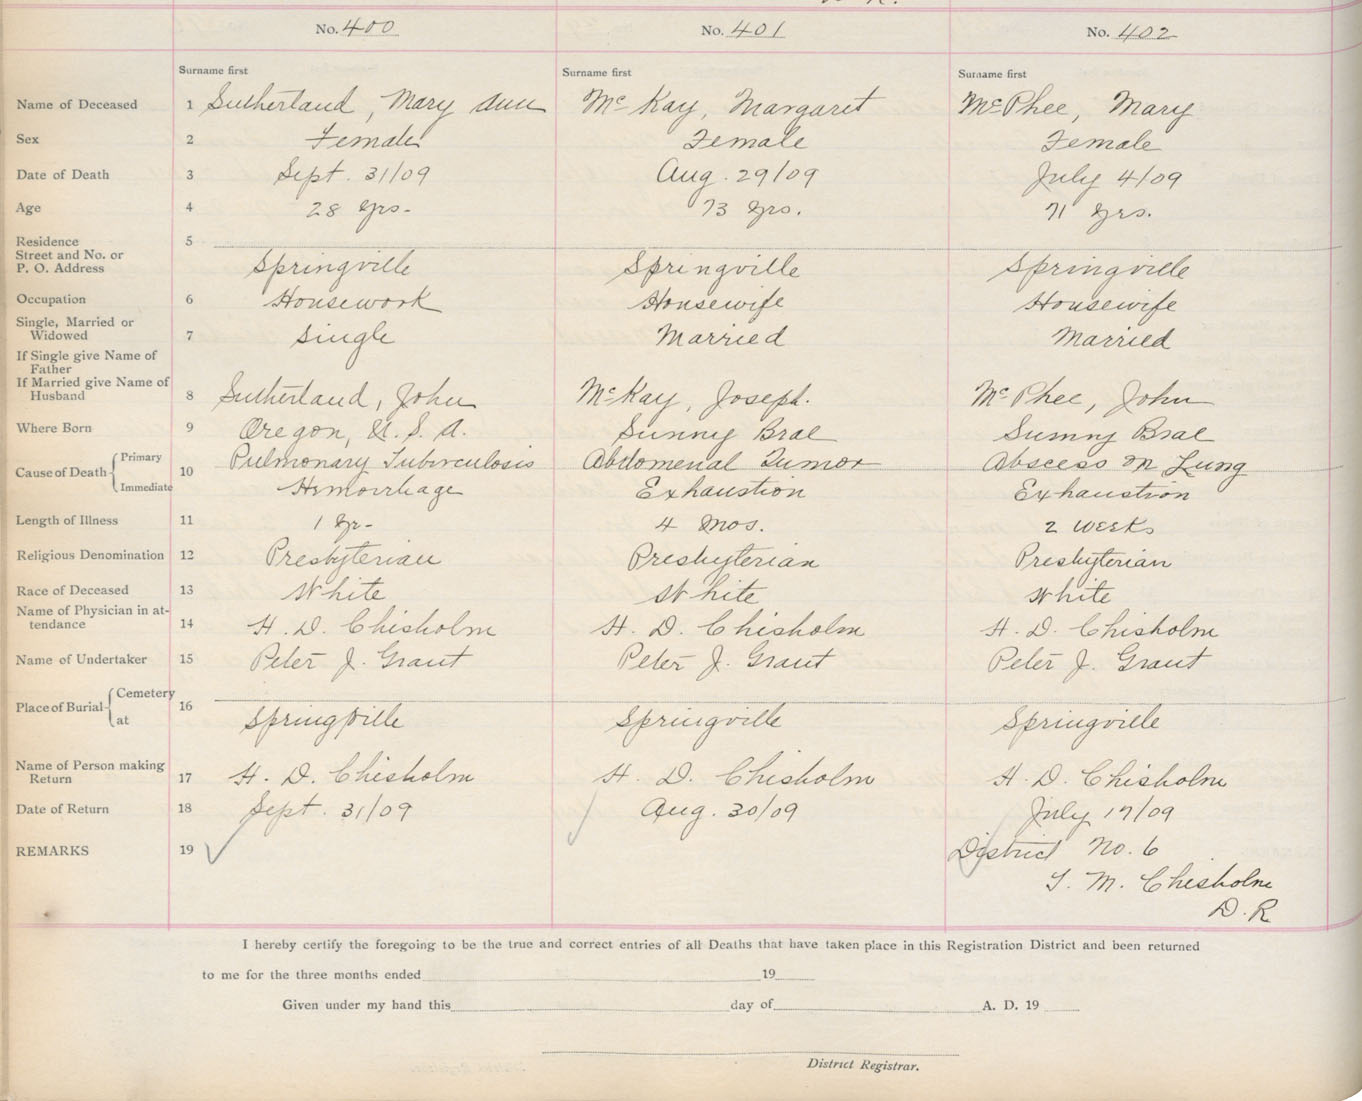 No. 400 No. 401 No. 402
Surname first Surname first Surname first
Name of Deceased 1 Sutherland, Mary Ann Mc Kay, Margaret McPhee, Mary
Sex 2 Female Female Female
Date of Death 3 Sept. 31/09 Aug. 29/09 July 4/09
Age 4 28 yrs. 73 yrs. 71 yrs.
Residence 5
Street and No. or
P. O. Address Springville Springville Springville
Occupation 6 Housework Housewife Housewife
Single, Married or
Widowed 7 Single Married Married
If Single give Name of
Father
If Married give Name of
Husband 8 Sutherland, John McKay, Joseph. McPhee, John
Where Born 9 Oregon, U. S. A. Sunny Brae Sunny Brae
Cause of Death Primary 10 Pulmonary Tuberculosis Abdomenal Tumor Abscess on Lung
Immediate Hemorrhage Exhaustion Exhaustion
Length of Illness 11 1 yr- 4 mos. 2 weeks
Religious Denomination 12 Presbyterian Presbyterian Presbyterian
Race of Deceased 13 White White White
Name of Physician in at-
tendance 14 H. D. Chisholm H. D. Chisholm H. D. Chisholm
Name of Undertaker 15 Peter J. Grant Peter J. Grant Peter J. Grant
Place of Burial Cemetery 16
at Springville Springville Springville
Name of Person making
Return 17 H. D. Chisholm H. D. Chisholm H. D. Chisholm
Date of Return 18 Sept. 31/09 Aug. 30/09 July 17/09
REMARKS 19 District No. 6
T. M. Chisholm
D. R
I hereby certify the foregoing to be the true and correct entries of all Deaths that have taken place in this Registration District and been returned
to me for the three months ended 19
Given under my hand this day of A. D. 19
District Registrar.